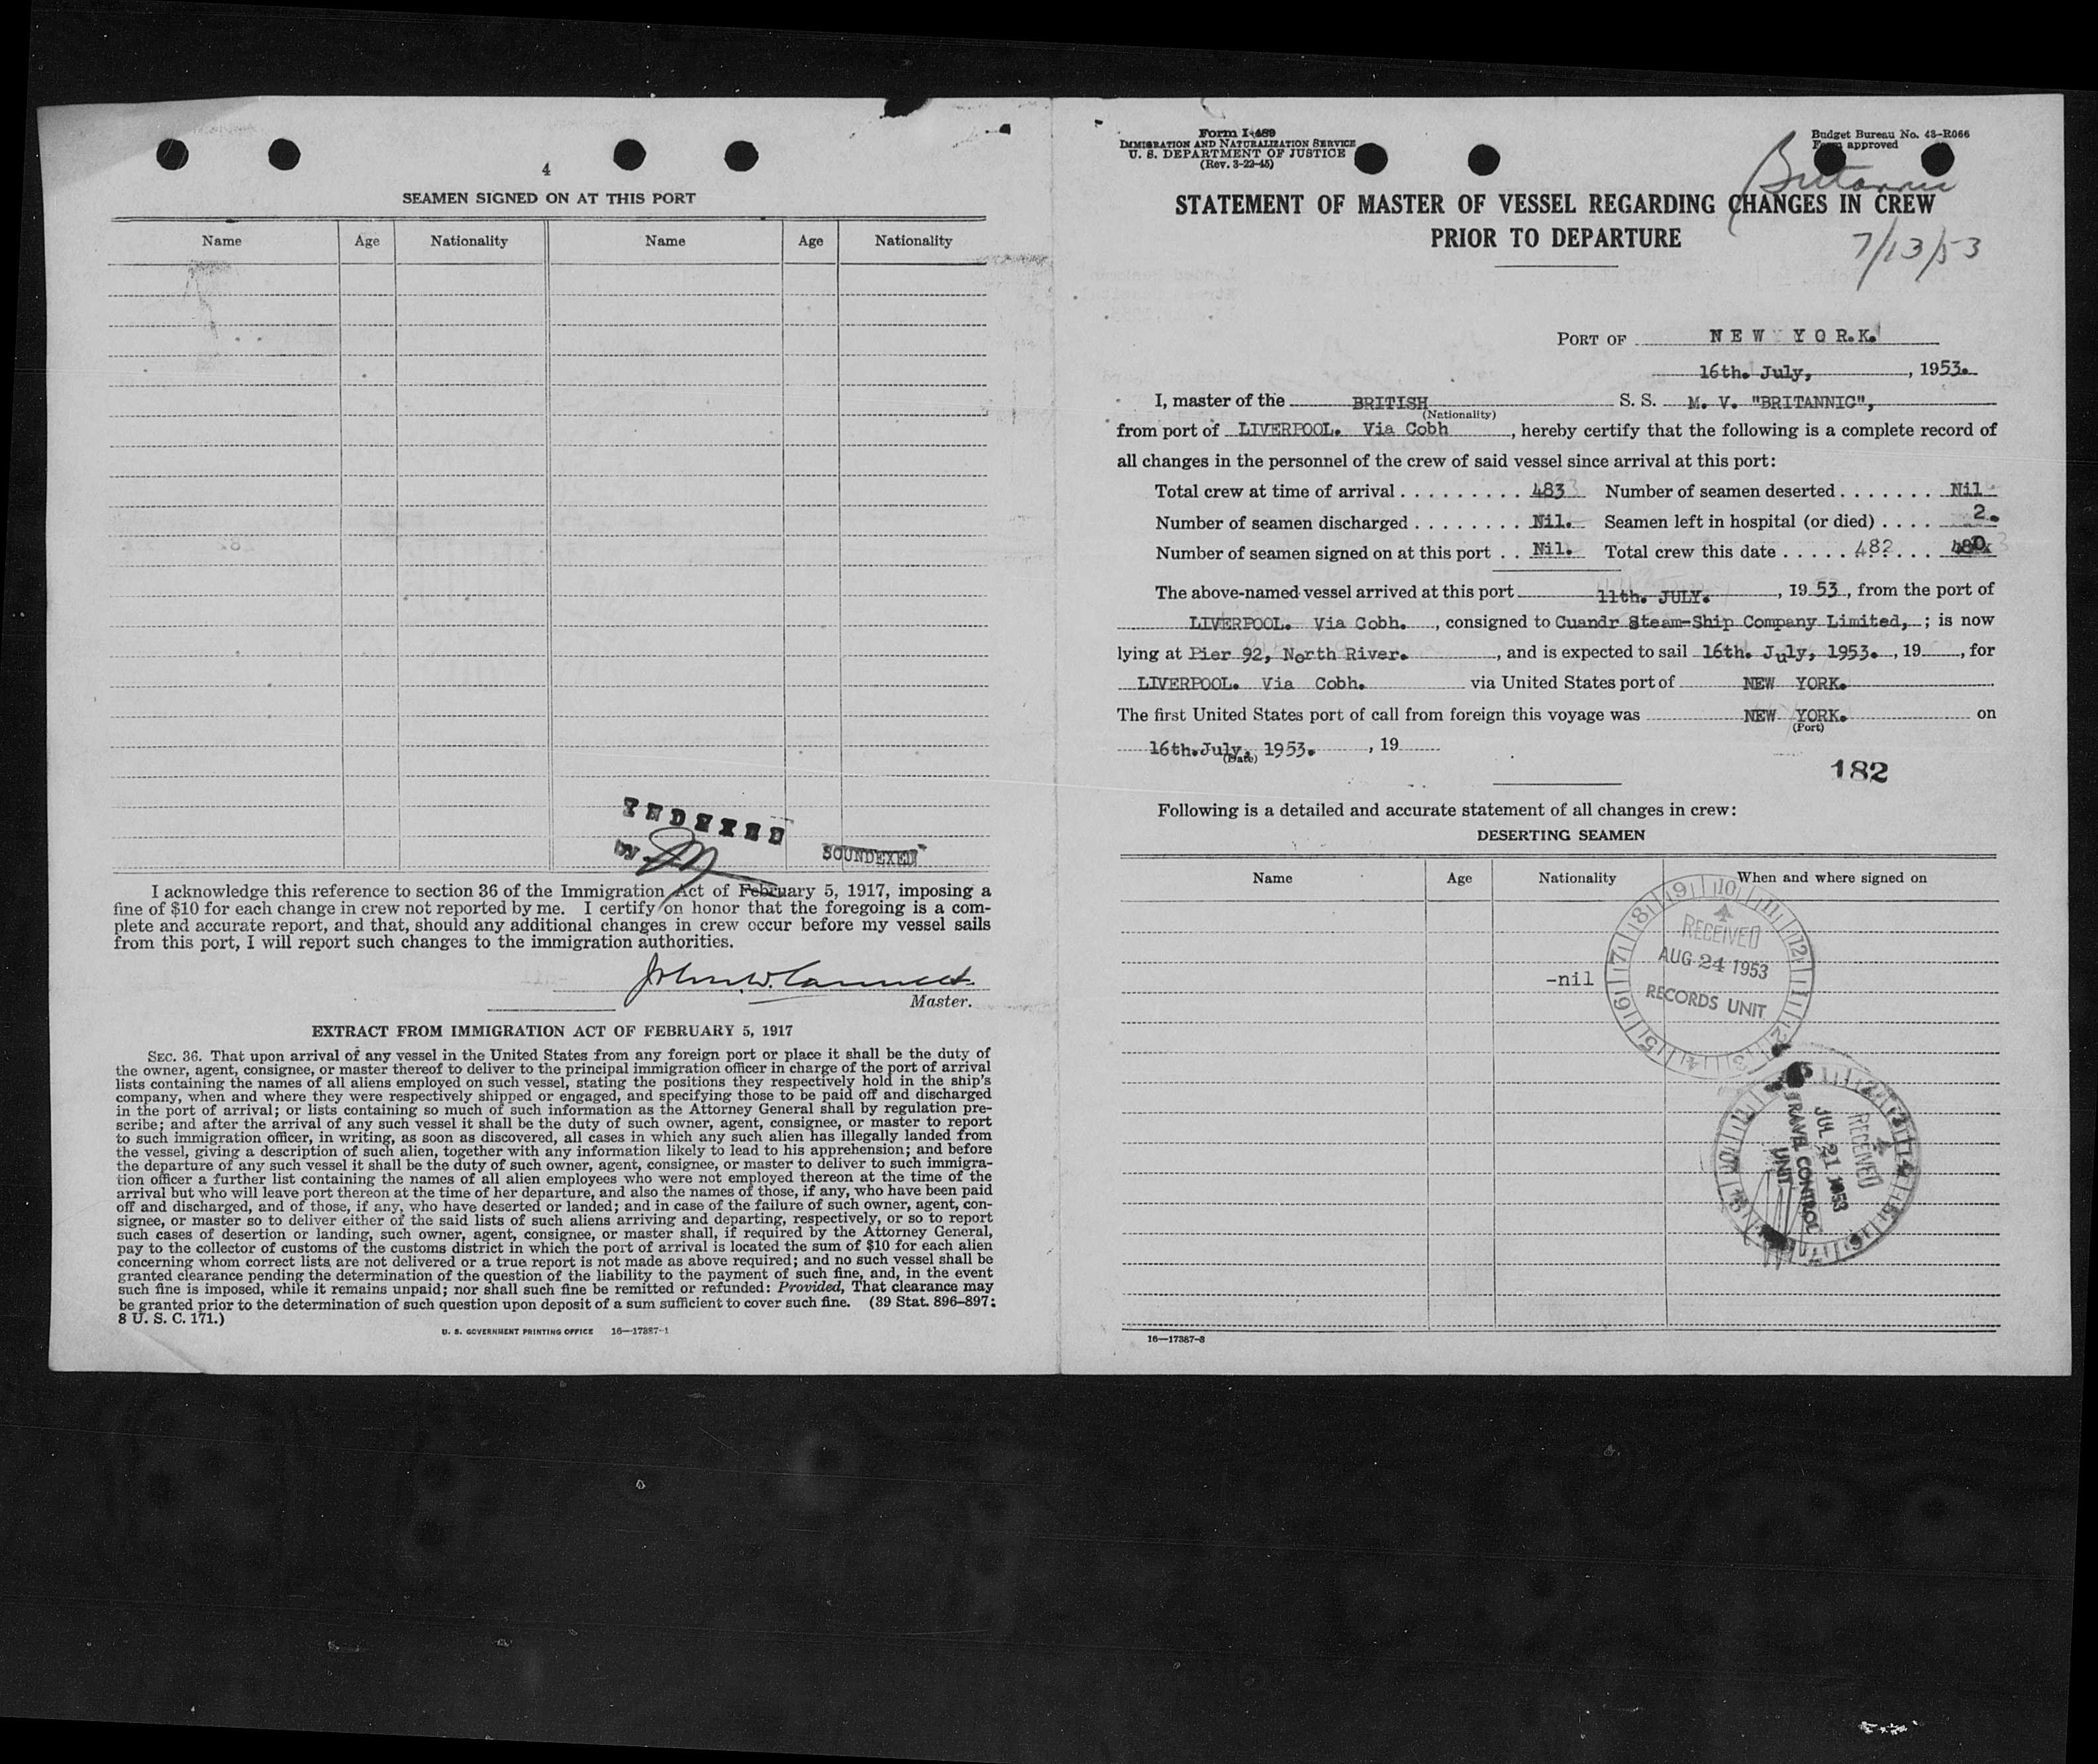 4
SEAMEN SIGNED ON AT THIS PORT
Name Age Nationality Name Age Nationality
INDEXED
BY
SOUNDEXED
I acknowledge this reference to section 36 of the Immigration Act of February 5, 1917, imposing a
fine of $10 for each change in crew not reported by me. I certify on honor that the foregoing is a com-
plete and accurate report, and that, should any additional changes in crew occur before my vessel sails
from this port, I will report such changes to the immigration authorities.
Master.
EXTRACT FROM IMMIGRATION ACT OF FEBRUARY 5, 1917
SEC. 36. That upon arrival of any vessel in the United States from any foreign port or place it shall be the duty of
the owner, agent, consignee, or master thereof to deliver to the principal immigration officer in charge of the port of arrival
lists containing the names of all aliens employed on such vessel, stating the positions they respectively hold in the ship's
company, when and where they were respectively shipped or engaged, and specifying those to be paid off and discharged
in the port of arrival; or lists containing so much of such information as the Attorney General shall by regulation pre-
scribe; and after the arrival of any such vessel it shall be the duty of such owner, agent, consignee, or master to report
to such immigration officer, in writing, as soon as discovered, all cases in which any such alien has illegally landed from
the vessel, giving a description of such alien, together with any information likely to lead to his apprehension; and before
the departure of any such vessel it shall be the duty of such owner, agent, consignee, or master to deliver to such immigra-
tion officer a further list containing the names of all alien employees who were not employed thereon at the time of the
arrival but who will leave port thereon at the time of her departure, and also the names of those, if any, who have been paid
off and discharged, and of those, if any, who have deserted or landed; and in case of the failure of such owner, agent, con-
signee, or master so to deliver either of the said lists of such aliens arriving and departing, respectively, or so to report
such cases of desertion or landing, such owner, agent, consignee, or master shall, if required by the Attorney General,
pay to the collector of customs of the customs district in which the port of arrival is located the sum of $10 for each alien
concerning whom correct lists are not delivered or a true report is not made as above required; and no such vessel shall be
granted clearance pending the determination of the question of the liability to the payment of such fine, and, in the event
such fine is imposed, while it remains unpaid; nor shall such fine be remitted or refunded: Provided, That clearance may
be granted prior to the determination of such question upon deposit of a sum sufficient to cover such fine. (39 Stat. 896-897;
8 U. S. C. 171.)
U. S. GOVERNMENT PRINTING OFFICE 16—17387-1
Form I-489
IMMIGRATION AND NATURALIZATION SERVICE
U. S. DEPARTMENT OF JUSTICE
(Rev. 3-22-45)
Budget Bureau No. 43-R066
Form approved
Britannic
STATEMENT OF MASTER OF VESSEL REGARDING CHANGES IN CREW
PRIOR TO DEPARTURE
7/13/53
PORT OF NEW YORK.
16th. July, , 1953.
I, master of the BRITISH S. S. M. V. "BRITANNIC",
(Nationality)
from port of LIVERPOOL. Via Cobh , hereby certify that the following is a complete record of
all changes in the personnel of the crew of said vessel since arrival at this port:
Total crew at time of arrival . . . . . . . . . 483 Number of seamen deserted . . . . . . . Nil
Number of seamen discharged . . . . . . . . Nil. Seamen left in hospital (or died) . . . . 2.
Number of seamen signed on at this port . . Nil. Total crew this date . . . . . 482 . . . 480
The above-named vessel arrived at this port 11th. JULY. , 19 53 , from the port of
LIVERPOOL. Via Cobh. , consigned to Cuandr Steam-Ship Company Limited, ; is now
lying at Pier 92, North River. , and is expected to sail 16th. July, 1953. , 19 , for
LIVERPOOL. Via Cobh. via United States port of NEW YORK.
The first United States port of call from foreign this voyage was NEW YORK. on
(Port)
16th.July, 1953. , 19
(Date)
182
Following is a detailed and accurate statement of all changes in crew:
DESERTING SEAMEN
Name Age Nationality When and where signed on
-nil
RECEIVED
AUG 24 1953
RECORDS UNIT
RECEIVED
JUL 21 1953
TRAVEL CONTROL
UNIT
16—17387-3